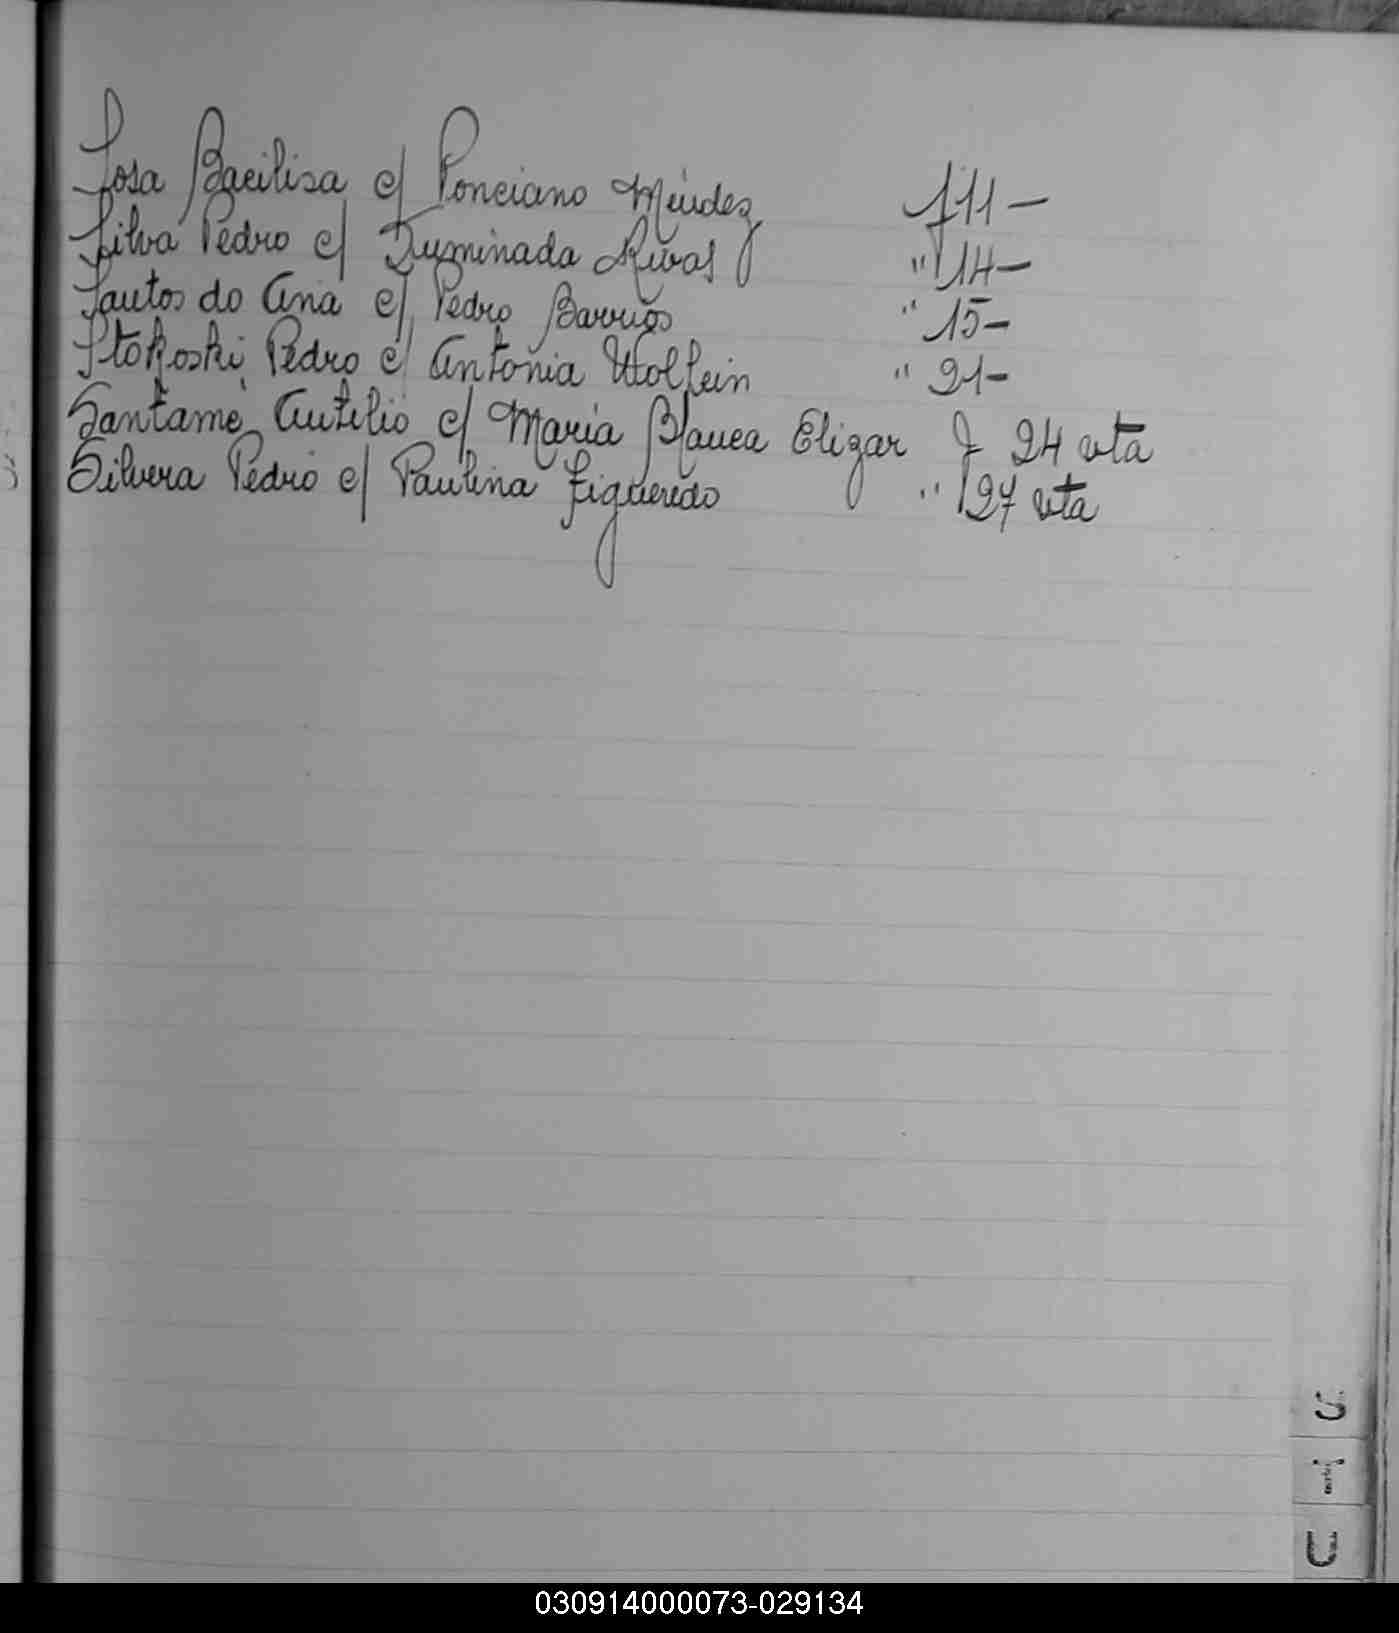 Sosa Bacilisa c/ Ponciano Méndez f 11 -
Silva Pedro c/ Iluminada Rivas " 14 -
Santos do Ana c/ Pedro Barrios " 15 -
Stokoski Pedro c/ Antonia Wolfein " 21 -
Santamé Autilio c/ Maria Blanca Elizar f 24 vta
Silvera Pedro c/ Paulina Figueredo " 27 vta
S
T
U
030914000073-029134